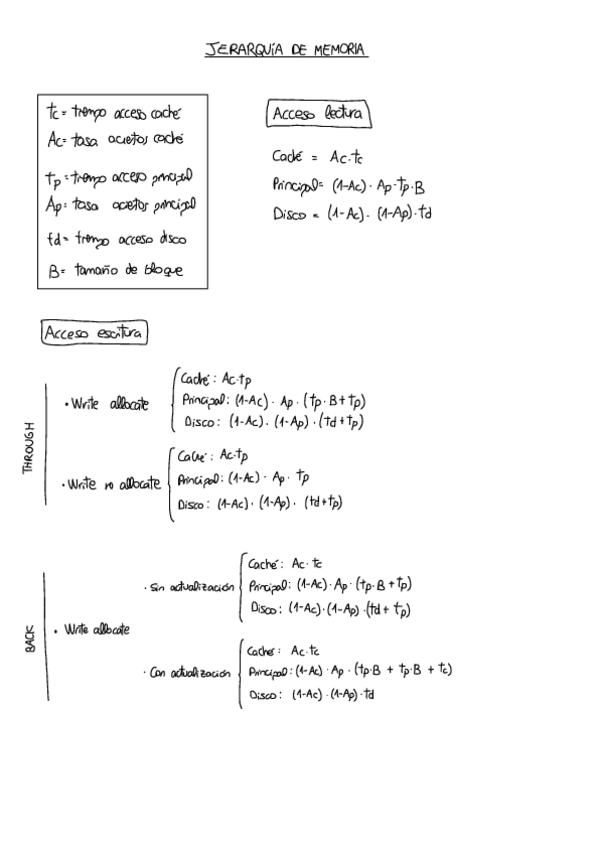 JERARQUÍA DE MEMORIA
tc = tiempo acceso caché
Ac = tasa aciertos caché
tp = tiempo acceso principal
Ap = tasa aciertos principal
td = tiempo acceso disco
B = tamaño de bloque
Acceso lectura
Caché = Ac·tc
Principal = (1-Ac) · Ap·tp·B
Disco = (1-Ac) · (1-Ap)·td
Acceso escritura
THROUGH
· Write allocate
Caché: Ac·tp
Principal: (1-Ac) · Ap · (tp·B + tp)
Disco: (1-Ac) · (1-Ap) · (td + tp)
· Write no allocate
Caché: Ac·tp
Principal: (1-Ac) · Ap · tp
Disco: (1-Ac) · (1-Ap) · (td+tp)
BACK
· Write allocate
· Sin actualización
Caché: Ac·tc
Principal: (1-Ac) · Ap · (tp·B + tp)
Disco: (1-Ac) · (1-Ap) · (td + tp)
· Con actualización
Caché: Ac·tc
Principal: (1-Ac) · Ap · (tp·B + tp·B + tc)
Disco: (1-Ac) · (1-Ap) · td